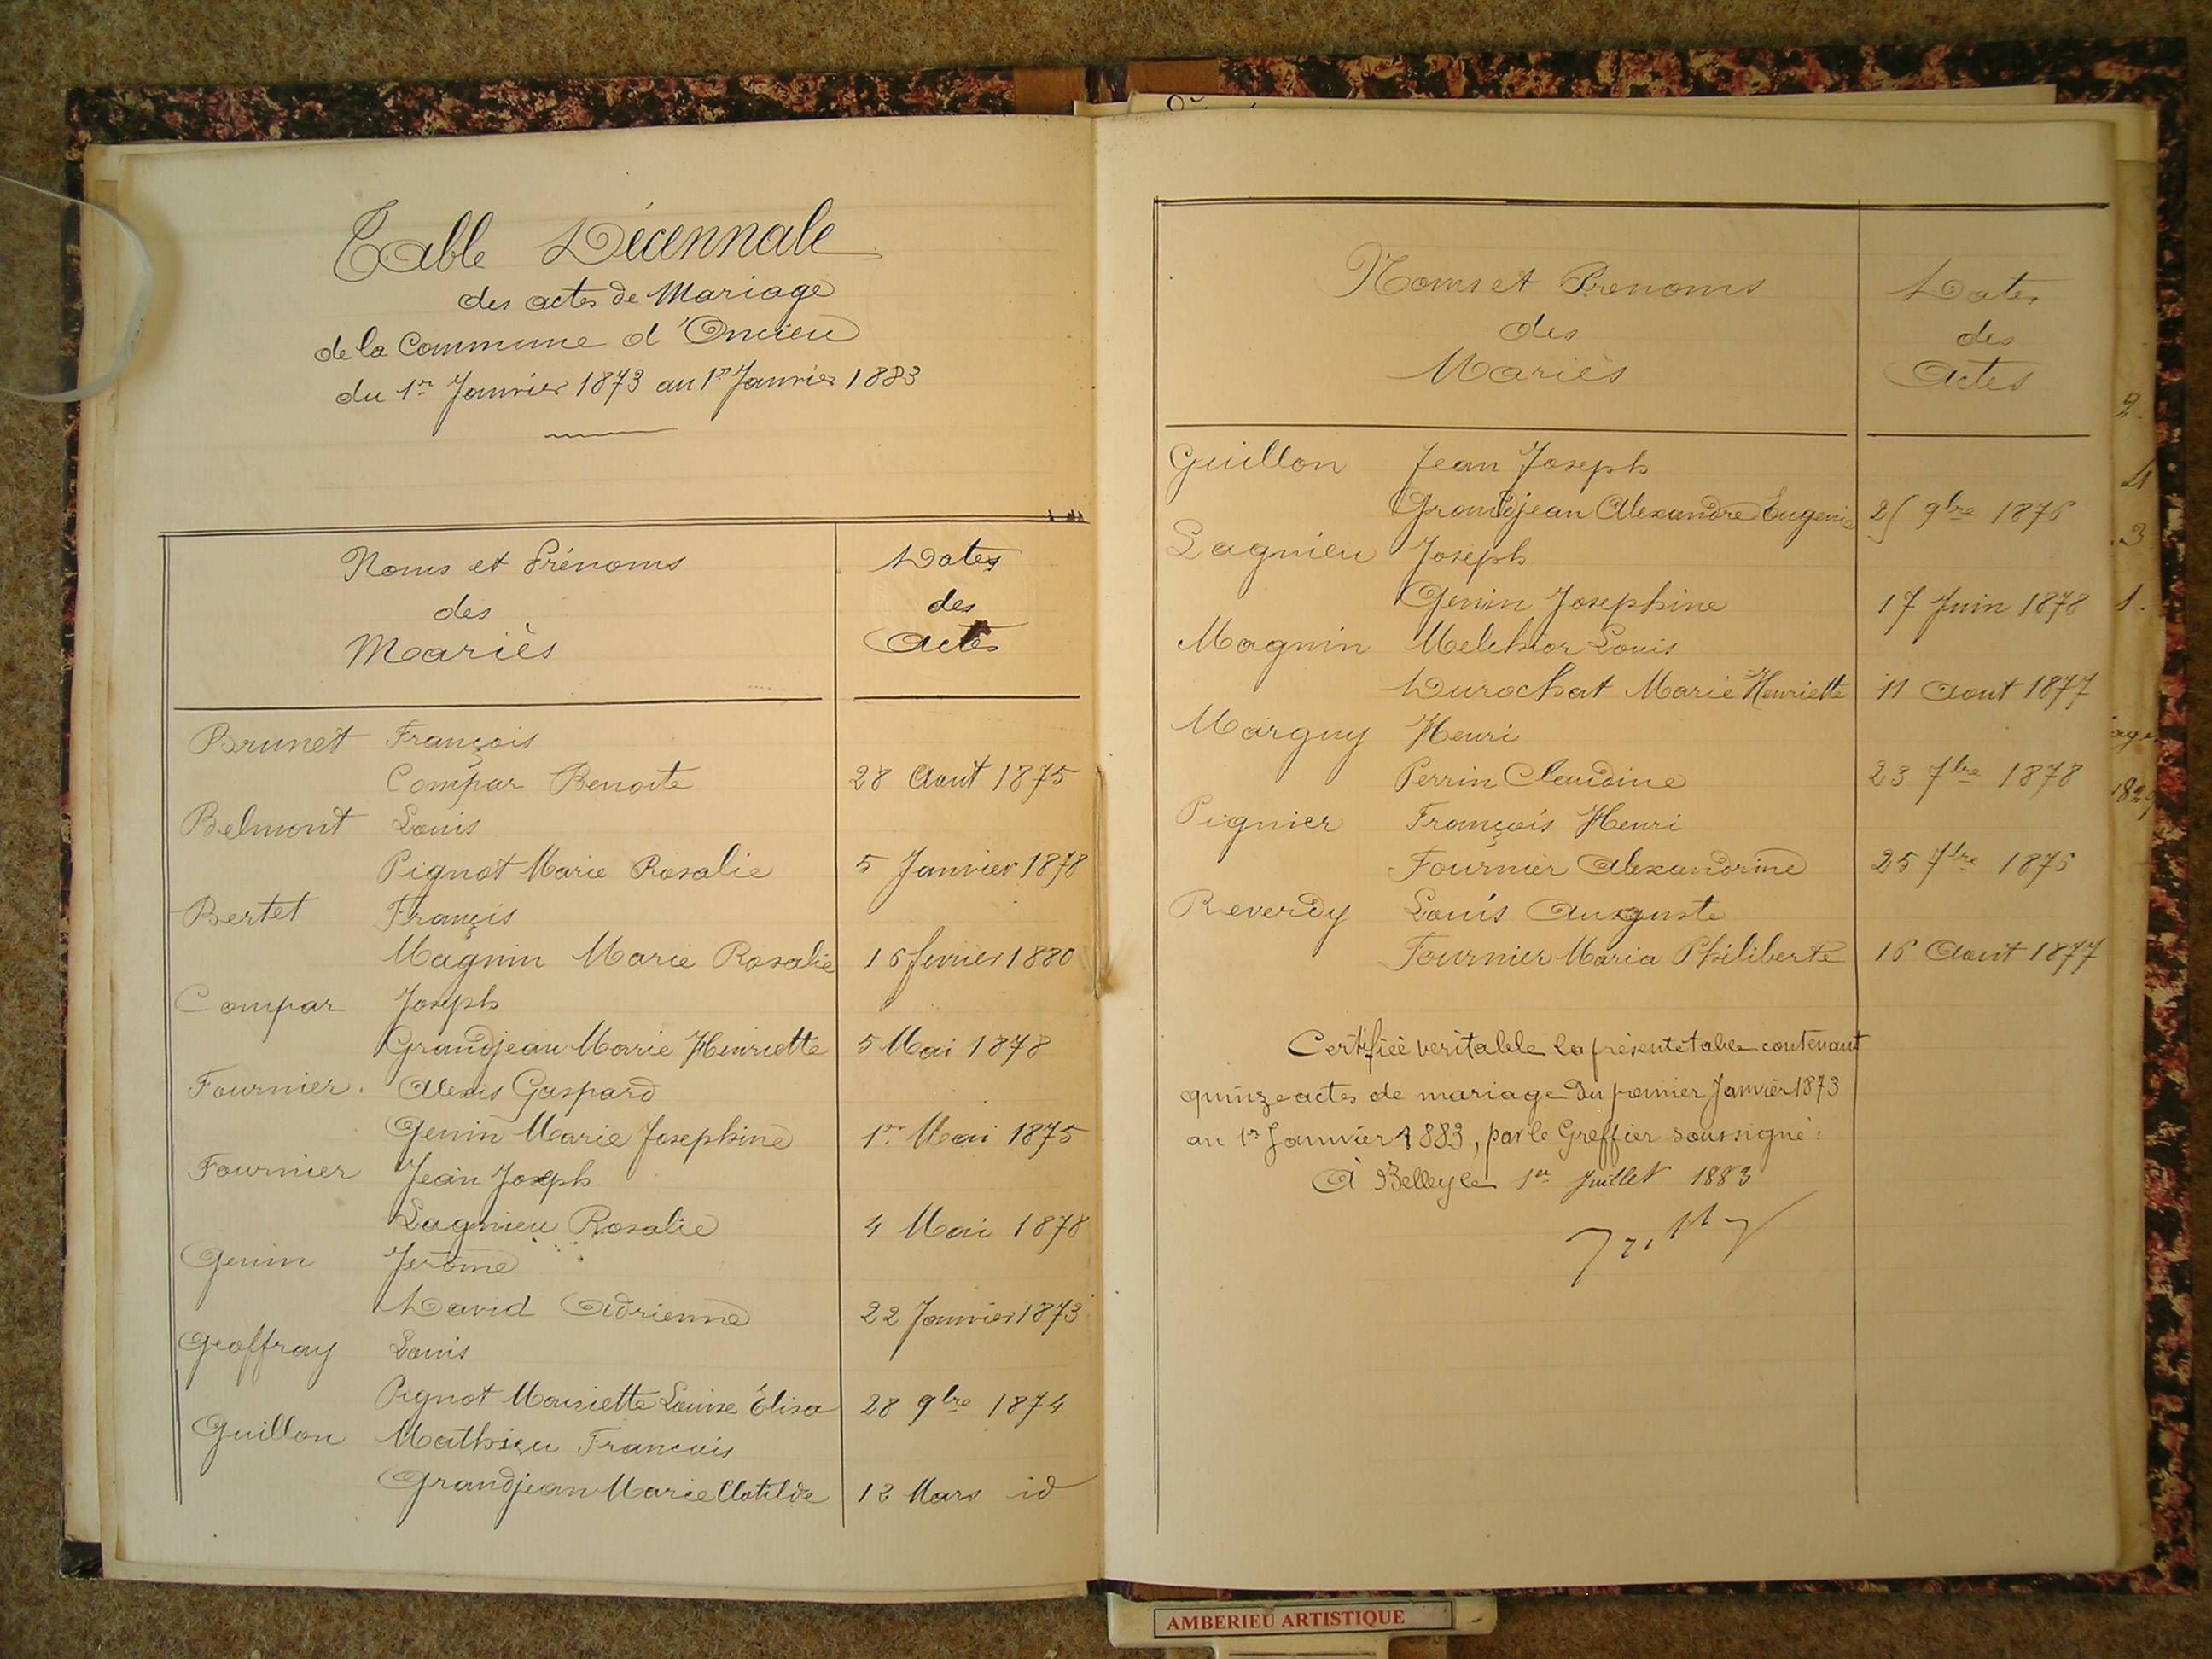 Table Décennale
des actes de Mariage
de la Commune d'Oncieu
du 1er Janvier 1873 au 1er Janvier 1883
Noms et Prénoms
des
Mariès
Dates
des
Actes
Brunet François
Compar Benoite 28 Aout 1875
Belmont Louis
Pignot Marie Rosalie 5 Janvier 1878
Bertet Françis
Magnin Marie Rosalie 16 fevrier 1880
Compar Joseph
Grandjean Marie Henriette 5 Mai 1878
Fournier. Alexis Gaspard
Genin Marie Josephine 1er Mai 1875
Fournier Jean Joseph
Lagnieu Rosalie 4 Mai 1878
Genin Jerôme
David Adrienne 22 Janvier 1873
Geoffray Louis
Pignot Mariette Louise Élisa 28 9bre 1874
Guillon Mathieu Francois
Grandjean Marie Clotilde 12 Mars id
Noms et Prenoms
des
Mariès
Dates
des
Actes
Guillon Jean Joseph
Grandjean Alexandre Eugenie 25 9bre 1876
Lagnieu Joseph
Genin Josephine 17 Juin 1878
Magnin Melchior Louis
Durochat Marie Henriette 11 Aout 1877
Marguy Henri
Perrin Claudine 23 7bre 1878
Pignier François Henri
Fournier Alexandrine 25 7bre 1875
Reverdy Louis Auguste
Fournier Maria Philiberte 16 Aout 1877
Certifiée veritable la présente table contenant
quinze actes de mariage du premier Janvier 1873
au 1er Janvier 1883, par le Greffier soussigné.
A Belley le 1er Juillet 1883
2.
4
.3
1.
AMBERIEU ARTISTIQUE